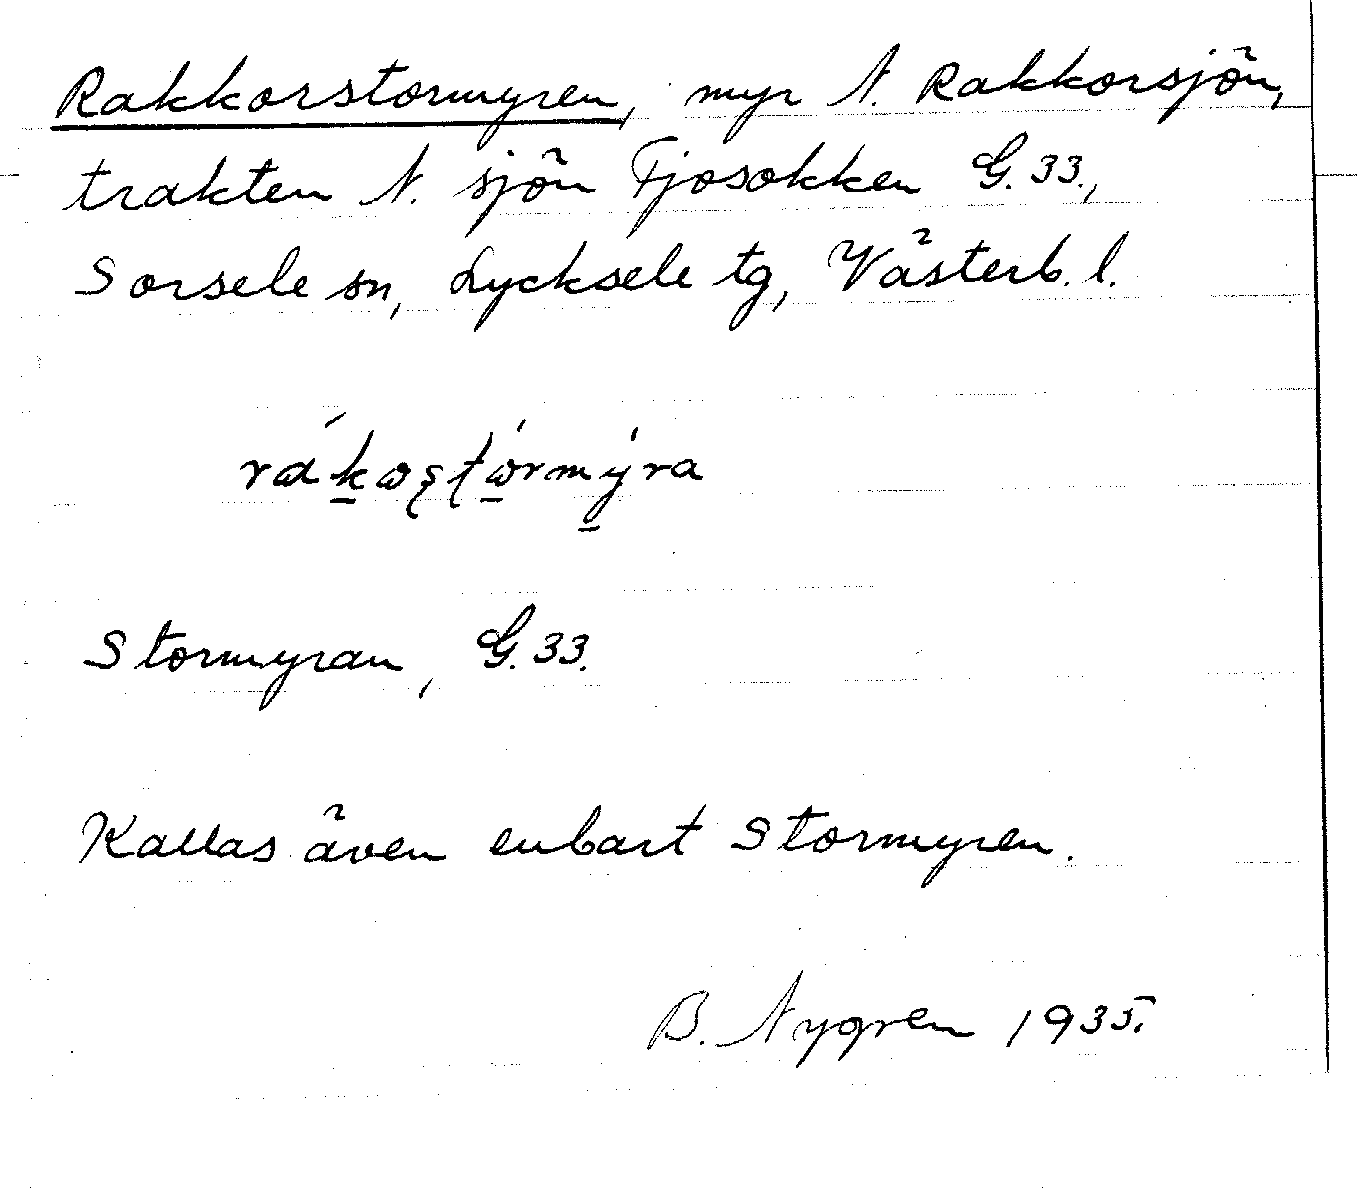 Rakkorstormyren, myr N. Rakkorsjön,
trakten N. sjön Fjosokken G. 33.,
Sorsele sn, Lycksele tg, Västerb. l.
Stormyran, G. 33.
Kallas även enbart Stormyren.
B. Nygren 1935.